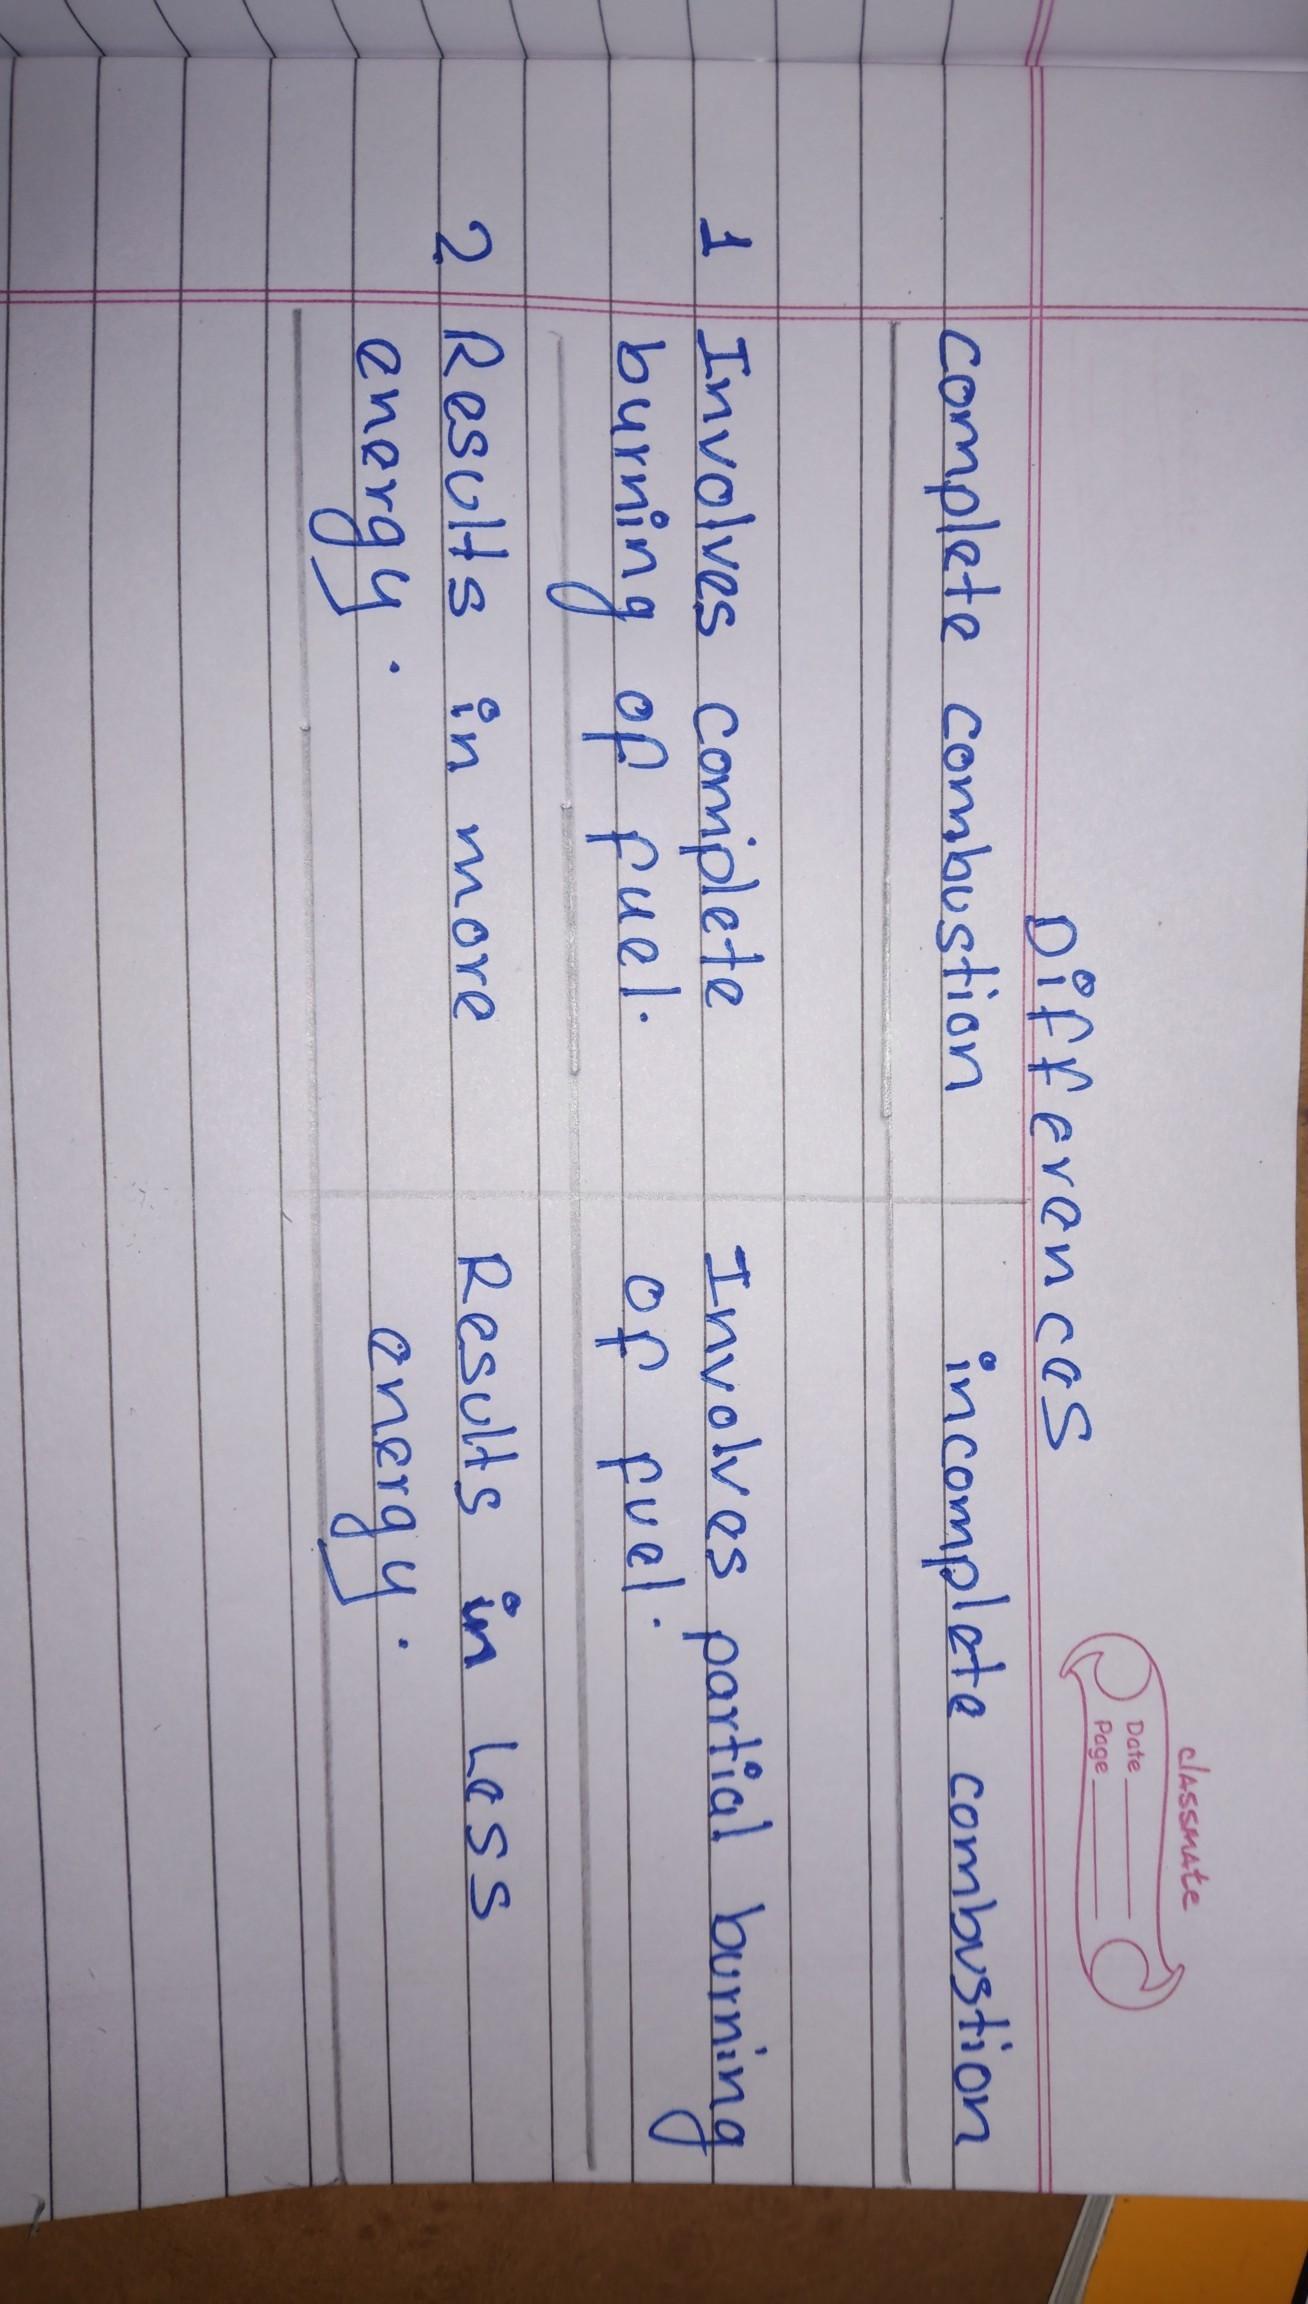 classmate
Date
Page
Differences
complete combustion incomplete combustion
1 Involves complete Involves partial burning
burning of fuel. of fuel.
2 Results in more Results in Less
energy. energy.